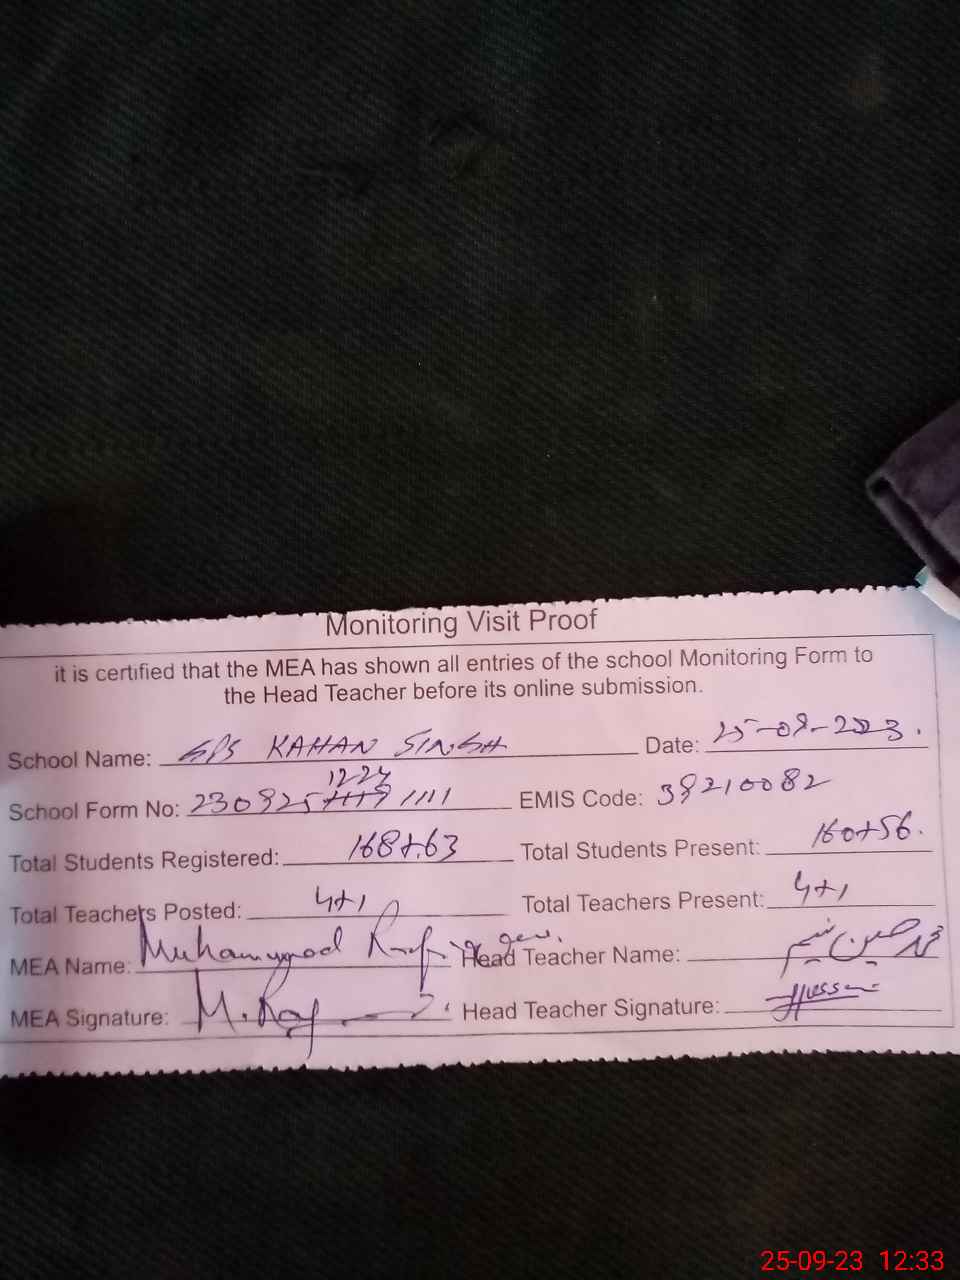 Monitoring Visit Proof
it is certified that the MEA has shown all entries of the school Monitoring Form to
the Head Teacher before its online submission.
School Name: GPS KAHAN SINGH Date: 25-09-2023.
1224
School Form No: 230925 1111 EMIS Code: 39210082
Total Students Registered: 168+63 Total Students Present: 160+56.
Total Teachers Posted: 4+1 Total Teachers Present: 4+1
MEA Name: Muhammad Head Teacher Name: محمد حسین
MEA Signature: M. Head Teacher Signature: Hussain
25-09-23 12:33